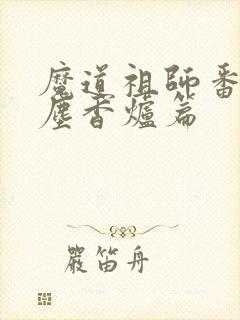 魔道祖師番
塵香爐篇
嚴笛舟